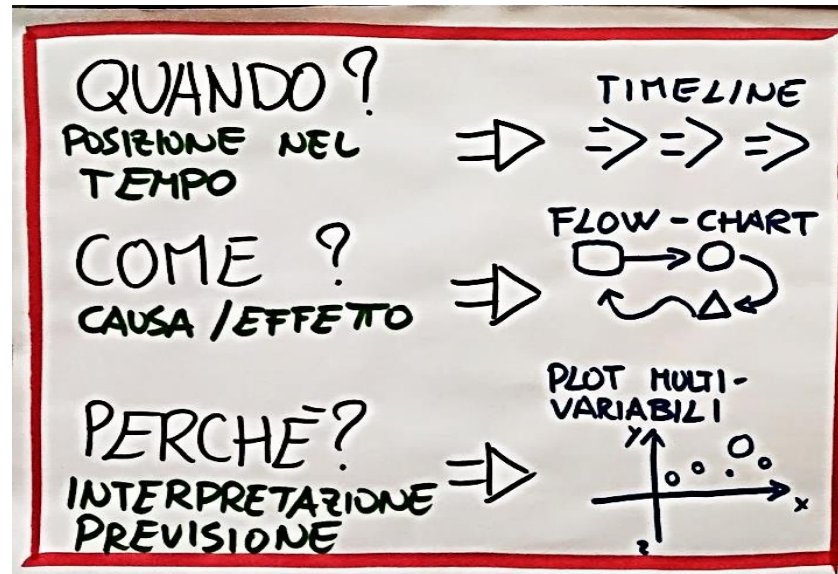 QUANDO?
POSIZIONE NEL
TEMPO
TIMELINE
COME ?
CAUSA / EFFETTO
FLOW-CHART
PERCHÈ?
INTERPRETAZIONE
PREVISIONE
PLOT MULTI-
VARIABILI
y
x
z